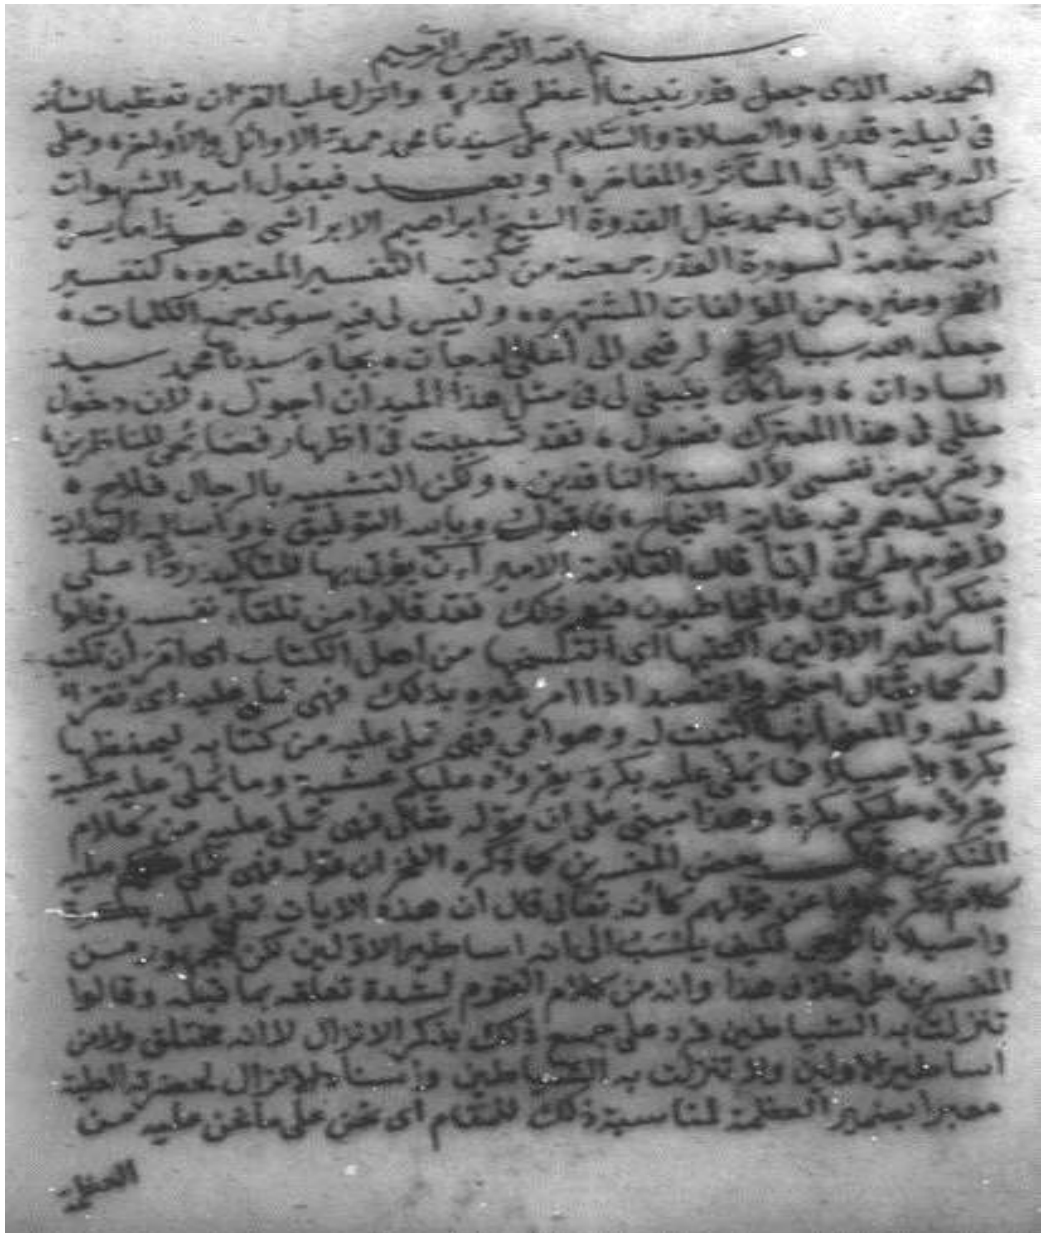 بسم الله الرحمن الرحيم
الحمد لله الذى جعل قدر نبينا أعظم قدره وانزل عليه القرءان تعظيما لشأنه
فى ليلة قدره والصلاة والسلام على سيدنا محمد عمدة الاوائل والأواخره وعلى
اله وصحبه أولى المآثر والمفاخره وبعد فيقول اسير الشهوات
كثير الهفوات محمد نجل القدوة الشيخ ابراهيم الابراشى هذا ما يسره
الله خدمة لسورة القدر جمعته من كتب التفسير المعتبره كتفسير
الفخر وغيره من المؤلفات المشتهره وليس لى فيه سوى جمع الكلمات
جعله الله سببا لرقيى الى أعلى الدرجات بجاه سيدنا محمد سيد
السادات وما كان ينبغى لى فى مثل هذا الميدان اجول لان دخول
مثلى فى هذا المعترك فضول فقد تسببت فى اظهار فضائحى للناظرين
وتعريض نفسى لألسنة الناقدين ولكن التشبيه بالرجال فلاح
وتقليدهم فيه غاية النجاح فاقول وبالله التوفيق وأساله الهداية
لأقوم طريق إنا قال العلامة الامير ان يؤتى بها للتأكيد ردا على
منكر أو شاك والمخاطبون فيهم ذلك فقد قالوا من تلقاء نفسه وقالوا
أساطير الاولين اكتتبها اى من اهل الكتاب اى امر أن تكتب
له كما يقال احتجم وافتصد اذا امر غيره بذلك فهى تملى عليه اى تقرأ
عليه والمعنى أنها كتبت له وهو امى فهى تملى عليه من كتابه ليحفظها
بكرة واصيلا فما يملى عليه بكرة يقرؤه عليكم عشية وما يملى عليه عشية
يقرؤه عليكم بكرة وهذا مبنى على ان قوله تعالى فهى تملى عليه من كلام
بعض المفسرين كما ذكره الفخر ان قوله فهى تملى عليه
كلام عن قولهم كأنه تعالى قال ان هذه الايات تملى عليه بكرة
واصيلا فكيف ينسب الى انه اساطير الاولين لكن جمهور من
المفسرين على خلاف هذا وانه من كلام القوم لشدة تعلقه بما قبله وقالوا
تنزلت به الشياطين فرد على جميع ذلك بذكر الانزال لا انه مختلق ولا من
اساطير الاولين ولا تنزلت به الشياطين واسناد الانزال لحضرته العلية
معبرا بضمير العظمة لمناسبة ذلك للمقام اى نحن على ما نحن عليه من
العظمة